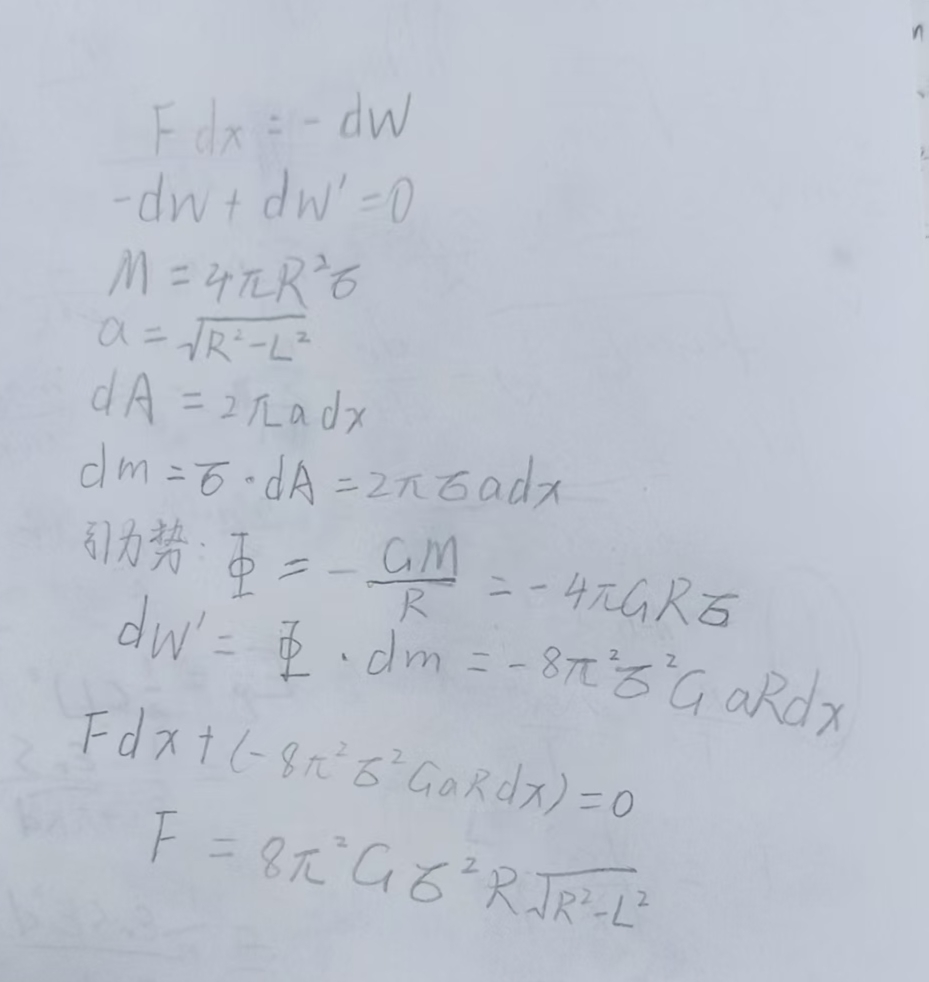 F dx = - dW
-dW + dW' = 0
M = 4πR²σ
a = √(R²-L²)
dA = 2πadx
dm = σ·dA = 2πσadx
引力势: Φ = - GM/R = -4πGRσ
dW' = Φ·dm = -8π²σ²GaRdx
Fdx + (-8π²σ²GaRdx) = 0
F = 8π²Gσ²R√(R²-L²)